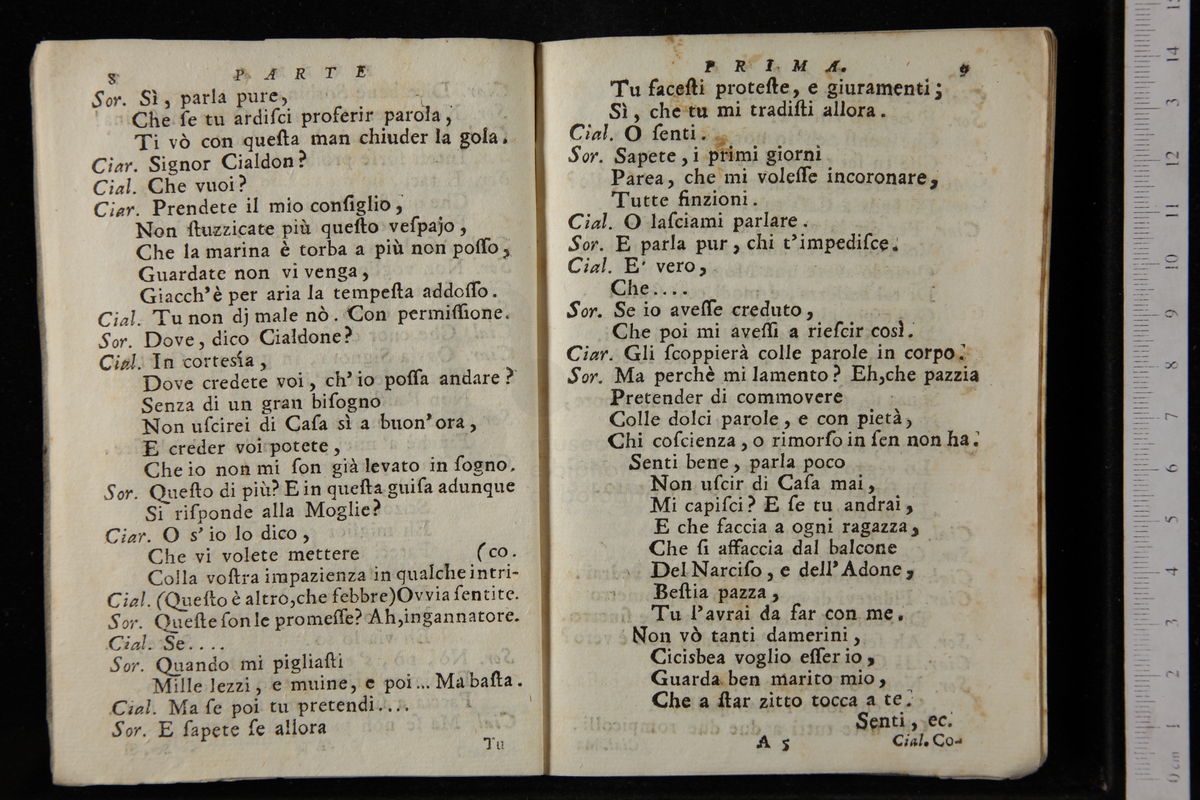 8 PARTE
Sor. Sì, parla pure,
Che ſe tu ardiſci proferir parola,
Ti vò con queſta man chiuder la gola.
Ciar. Signor Cialdon?
Cial. Che vuoi?
Ciar. Prendete il mio conſiglio,
Non ſtuzzicate più queſto veſpajo,
Che la marina è torba a più non poſſo,
Guardate non vi venga,
Giacch'è per aria la tempeſta addoſſo.
Cial. Tu non dj male nò. Con permiſſione.
Sor. Dove, dico Cialdone?
Cial. In cortesía,
Dove credete voi, ch'io poſſa andare?
Senza di un gran biſogno
Non uſcirei di Caſa sì a buon'ora,
E creder voi potete,
Che io non mi ſon già levato in ſogno.
Sor. Queſto di più? E in queſta guiſa adunque
Si riſponde alla Moglie?
Ciar. O s'io lo dico,
Che vi volete mettere (co.
Colla voſtra impazienza in qualche intri-
Cial. (Queſto è altro, che febbre) Ovvia ſentite.
Sor. Queſte ſon le promeſſe? Ah, ingannatore.
Cial. Se....
Sor. Quando mi pigliaſti
Mille lezzi, e muine, e poi... Ma baſta.
Cial. Ma ſe poi tu pretendi....
Sor. E ſapete ſe allora
Tu
PRIMA. 9
Tu faceſti proteſte, e giuramenti;
Sì, che tu mi tradiſti allora.
Cial. O ſenti.
Sor. Sapete, i primi giorni
Parea, che mi voleſſe incoronare,
Tutte finzioni.
Cial. O laſciami parlare.
Sor. E parla pur, chi t'impediſce.
Cial. E' vero,
Che....
Sor. Se io aveſſe creduto,
Che poi mi aveſſi a rieſcir così.
Ciar. Gli ſcoppierà colle parole in corpo.
Sor. Ma perchè mi lamento? Eh, che pazzia
Pretender di commovere
Colle dolci parole, e con pietà,
Chi coſcienza, o rimorſo in ſen non ha.
Senti bene, parla poco
Non uſcir di Caſa mai,
Mi capiſci? E ſe tu andrai,
E che faccia a ogni ragazza,
Che ſi affaccia dal balcone
Del Narciſo, e dell'Adone,
Beſtia pazza,
Tu l'avrai da far con me.
Non vò tanti damerini,
Cicisbea voglio eſſer io,
Guarda ben marito mio,
Che a ſtar zitto tocca a te.
Senti, ec.
A 5 Cial. Co-